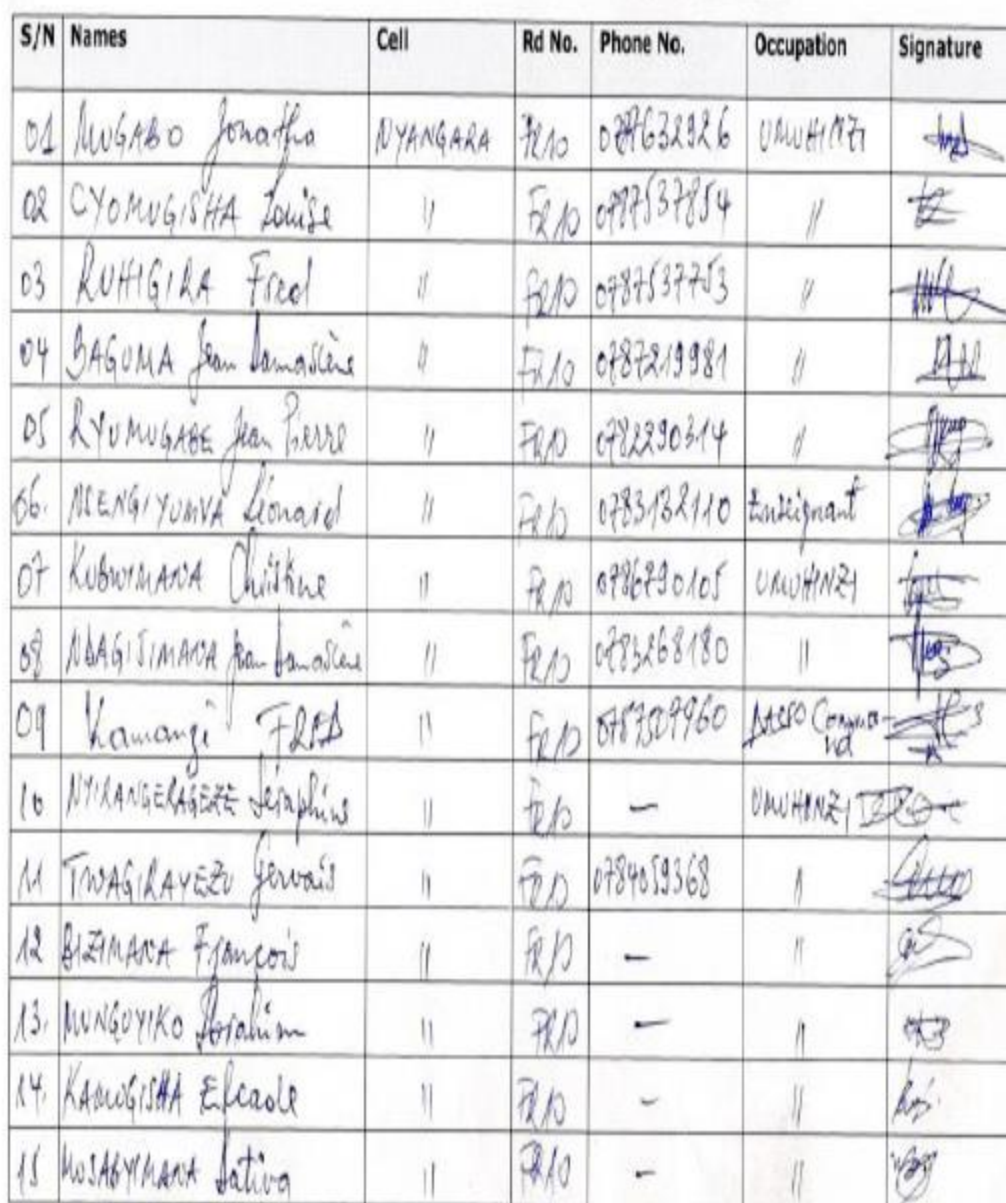 S/N Names Cell Rd No. Phone No. Occupation Signature
01 MUGABO Jonatha NYANGARA FR10 UMUHINZI
02 CYOMUGISHA Louise " FR10 0787537854 "
03 RUHIGIRA Fred " FR10 0787537753 "
04 BAGUMA Jean Damascène " FR10 0787219981 "
05 RYUMUGABE Jean Pierre " FR10 0782290314 "
06. NSENGIYUMVA Léonard " FR10 0783132110 Enseignant
07 KUBWIMANA Christine " FR10 0786790105 UMUHINZI
08 NDAGIJIMANA Jean Damascène " FR10 0783268180 "
09 Kamanzi FRED " FR10
10 NYIRANGERAGEZE Séraphine " FR10 - UMUHINZI
11 TWAGIRAYEZU Gervais " FR10 0784059368 "
12 BIZIMANA François " FR10 - "
13. MUNGUYIKO " FR10 - "
14. KAMUGISHA " FR10 - "
15 MUSABYIMANA " FR10 - "